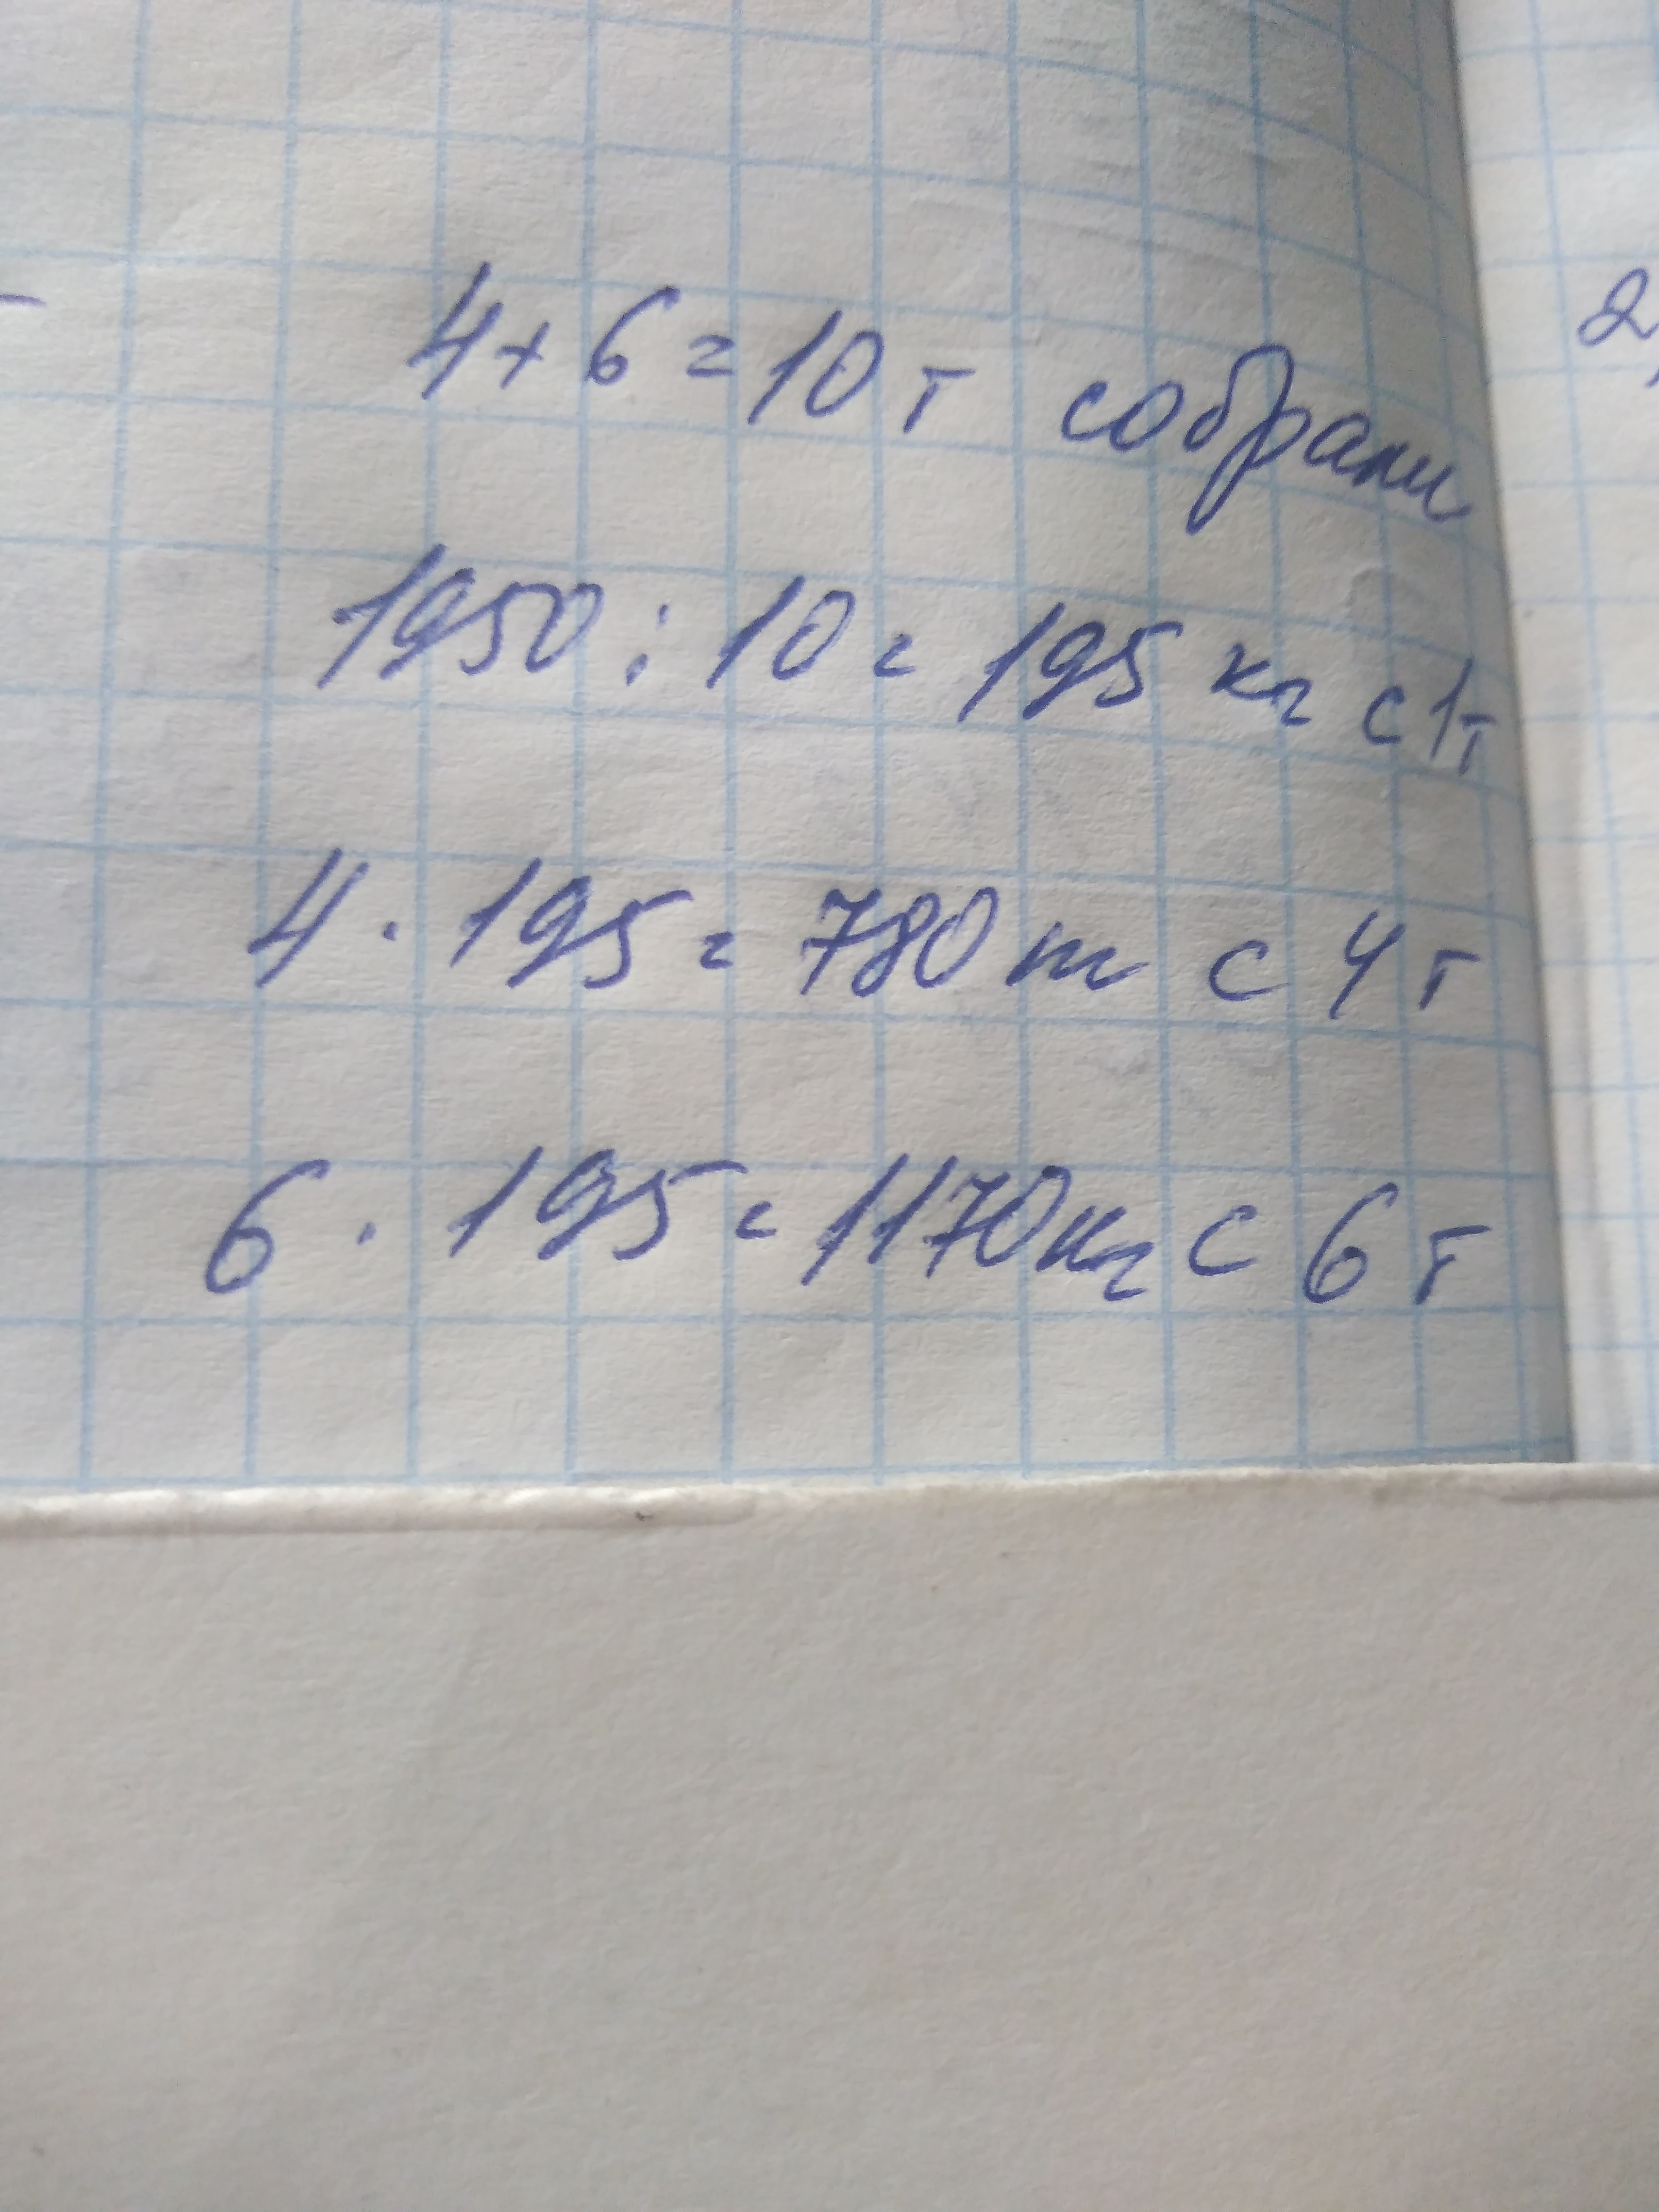 4+6=10 т собрали
2,
1950:10=195 кг с 1т
4·195=780 кг с 4т
6·195=1170кг с 6т